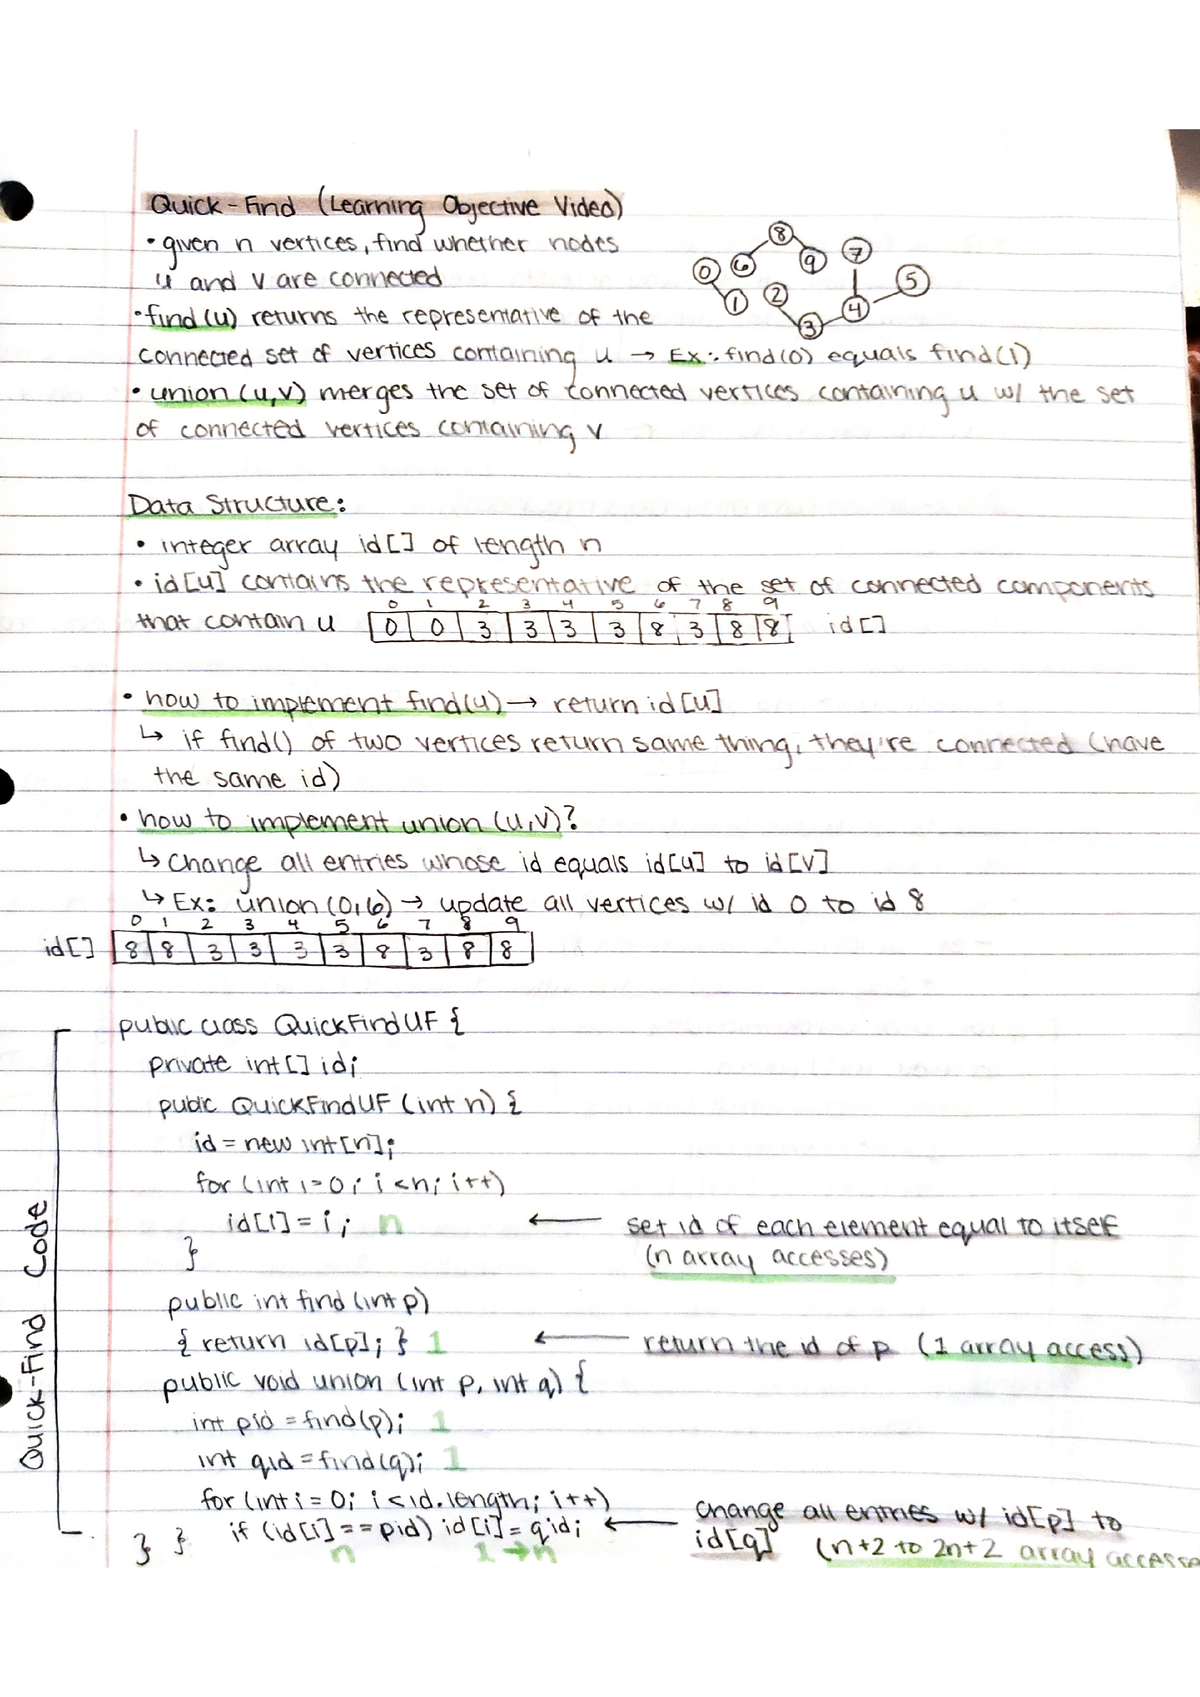 Quick-Find (Learning Objective Video)
• given n vertices, find whether nodes
u and v are connected
• find(u) returns the representative of the
connected set of vertices containing u → Ex: find(0) equals find(1)
• union(u,v) merges the set of connected vertices containing u w/ the set
of connected vertices containing v
8
7
0 6 9 5
1 2 4
3
Data Structure:
• integer array id[] of length n
• id[u] contains the representative of the set of connected components
0 1 2 3 4 5 6 7 8 9
that contain u 0 0 3 3 3 3 8 3 8 8 id[]
• how to implement find(u) → return id[u]
↳ if find() of two vertices return same thing, they're connected (have
the same id)
• how to implement union (u,v)?
↳ change all entries whose id equals id[u] to id[v]
↳ Ex: union (0,6) → update all vertices w/ id 0 to id 8
0 1 2 3 4 5 6 7 8 9
id[] 8 8 3 3 3 3 8 3 8 8
Quick-Find Code
public class QuickFindUF {
private int[] id;
public QuickFindUF (int n) {
id = new int[n];
for (int i=0; i<n; i++)
id[i] = i; n ← set id of each element equal to itself
} (n array accesses)
public int find (int p)
{ return id[p]; } 1 ← return the id of p (1 array access)
public void union (int p, int q) {
int pid = find(p); 1
int qid = find(q); 1
for (int i = 0; i < id.length; i++)
if (id[i] == pid) id[i] = qid; ← change all entries w/ id[p] to
} } n 1→n id[q] (n+2 to 2n+2 array